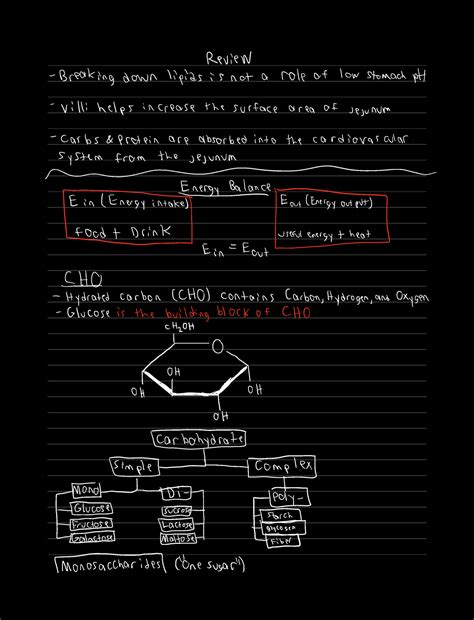 Review
- Breaking down lipids is not a role of low stomach pH
- Villi helps increase the surface area of jejunum
- Carbs & Protein are absorbed into the cardiovascular
system from the jejunum
Energy Balance
E in (Energy intake)
food + Drink
E out (Energy output)
useful energy + heat
E in = E out
CHO
- Hydrated carbon (CHO) contains Carbon, Hydrogen, and Oxygen
- Glucose is the building block of CHO
CH₂OH
O
OH
OH
OH
OH
Carbohydrate
Simple
Complex
Mono
Di-
Poly-
Glucose
Fructose
Galactose
Sucrose
Lactose
Maltose
Starch
Glycogen
Fiber
Monosaccharides ("One sugar")